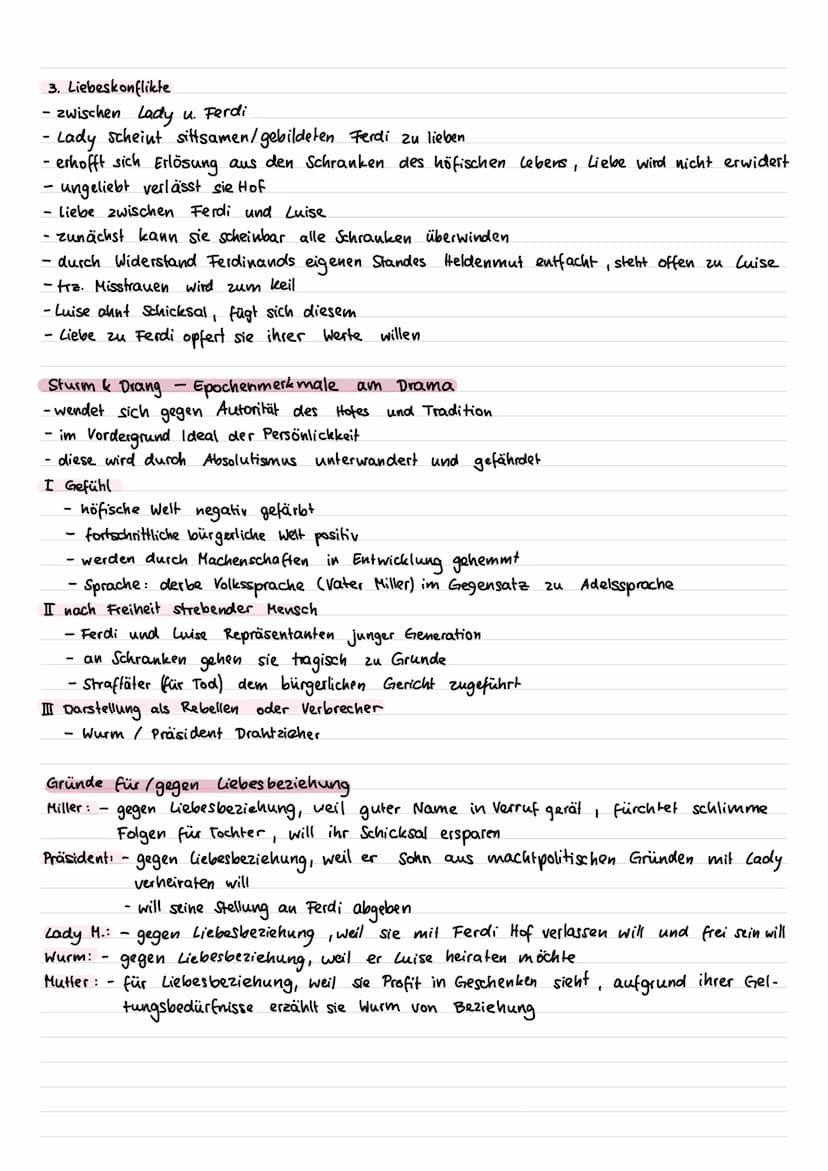 3. Liebeskonflikte
- zwischen Lady u. Ferdi
- Lady scheint sittsamen/gebildeten Ferdi zu lieben
- erhofft sich Erlösung aus den Schranken des höfischen Lebens, Liebe wird nicht erwidert
- ungeliebt verlässt sie Hof
- Liebe zwischen Ferdi und Luise
- zunächst kann sie scheinbar alle Schranken überwinden
- durch Widerstand Ferdinands eigenen Standes Heldenmut entfacht, steht offen zu Luise
- trz. Misstrauen wird zum Keil
- Luise ahnt Schicksal, fügt sich diesem
- Liebe zu Ferdi opfert sie ihrer Werte willen
Sturm & Drang - Epochenmerkmale am Drama
- wendet sich gegen Autorität des Hofes und Tradition
- im Vordergrund Ideal der Persönlichkeit
- diese wird durch Absolutismus unterwandert und gefährdet
I Gefühl
- höfische Welt negativ gefärbt
- fortschrittliche bürgerliche Welt positiv
- werden durch Machenschaften in Entwicklung gehemmt
- Sprache: derbe Volkssprache (Vater Miller) im Gegensatz zu Adelssprache
II nach Freiheit strebender Mensch
- Ferdi und Luise Repräsentanten junger Generation
- an Schranken gehen sie tragisch zu Grunde
- Straftäter (für Tod) dem bürgerlichen Gericht zugeführt
III Darstellung als Rebellen oder Verbrecher
- Wurm / Präsident Drahtzieher
Gründe für/gegen Liebesbeziehung
Miller: - gegen Liebesbeziehung, weil guter Name in Verruf gerät, fürchtet schlimme
Folgen für Tochter, will ihr Schicksal ersparen
Präsident: - gegen Liebesbeziehung, weil er Sohn aus machtpolitischen Gründen mit Lady
verheiraten will
- will seine Stellung an Ferdi abgeben
Lady M.: - gegen Liebesbeziehung, weil sie mit Ferdi Hof verlassen will und frei sein will
Wurm: - gegen Liebesbeziehung, weil er Luise heiraten möchte
Mutter: - für Liebesbeziehung, weil sie Profit in Geschenken sieht, aufgrund ihrer Gel-
tungsbedürfnisse erzählt sie Wurm von Beziehung